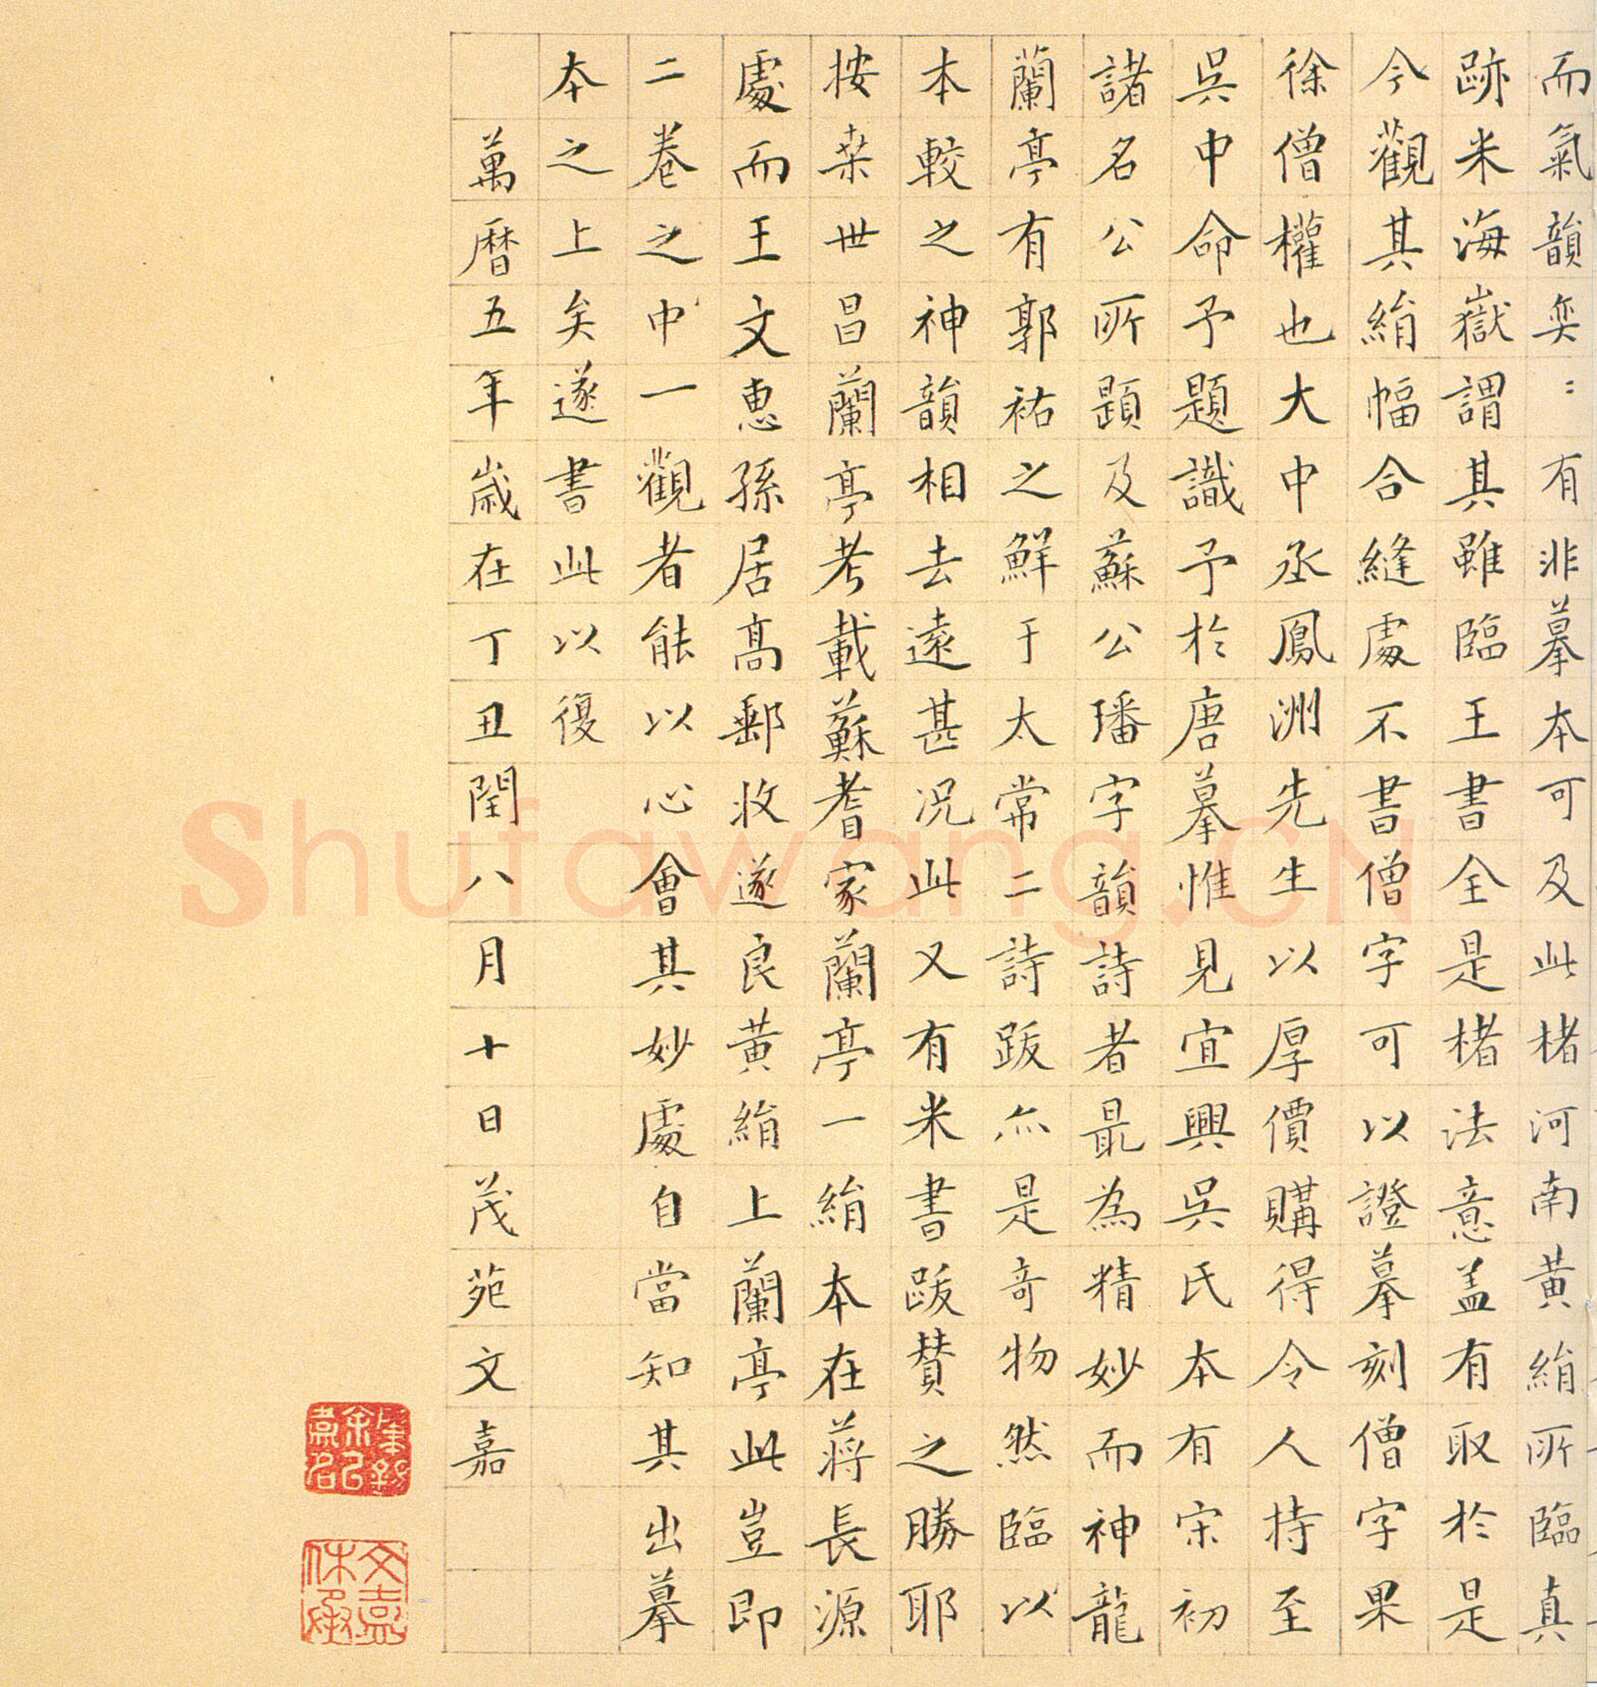 而氣韻奕：有非摹本可及此楮河南黃絹所臨真
跡米海嶽謂其雖臨王書全是楮法意盖有取於是
今觀其絹幅合縫處不書僧字可以證摹刻僧字果
徐僧權也大中丞鳳洲先生以厚價購得令人持至
吳中命予題識予於唐摹惟見宜興吳氏本有宋初
諸名公所題及蘇公璠字韻詩者最為精妙而神龍
蘭亭有郭祐之鮮于太常二詩跋亦是奇物然臨以
本較之神韻相去遠甚況此又有米書跋贊之勝耶
按桒世昌蘭亭考載蘇耆家蘭亭一絹本在蔣長源
處而王文惠孫居高郵收遂良黃絹上蘭亭此豈即
二卷之中一觀者能以心會其妙處自當知其出摹
本之上矣遂書此以復
萬曆五年歲在丁丑閏八月十日茂苑文嘉
肇錫余以嘉名
文嘉休承
Shufawang.CN